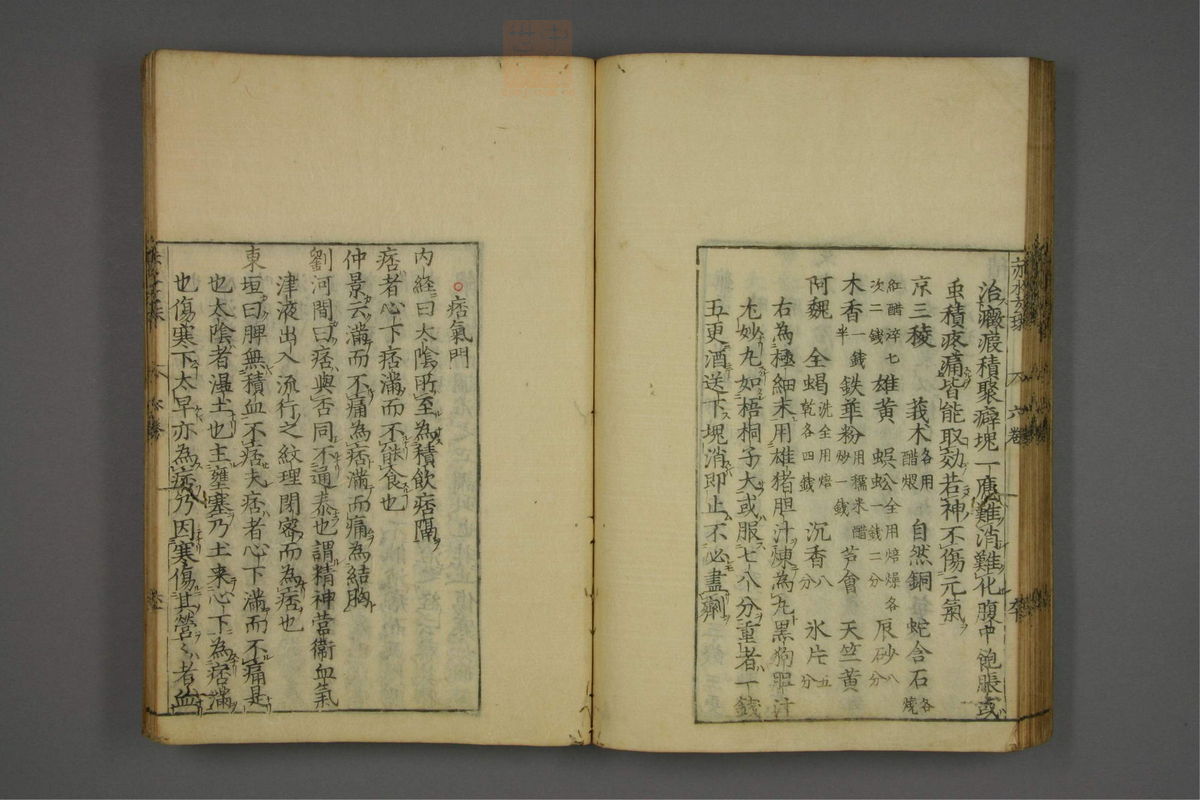 治癥瘕積聚癖塊一應難消難化腹中飽脹或
虫積疼痛皆能取効若神不傷元氣
京三稜 莪术各用醋煨 自然銅 蛇含石各燒
紅醋淬七次二錢 雄黄 蜈蚣全用焙燥各一錢二分 辰砂八分
木香一錢半 鉄華粉用糯米醋炒一錢 芦會 天竺黄
阿魏 全蝎洗全用焙乾各四錢 沉香八分 氷片五分
右為極細末用雄猪胆汁煉為丸黒狗胆汁
尢妙丸如梧桐子大或服七八分重者一錢
五更酒送下塊消即止不必盡劑
六卷
痞氣門
内経曰太陰所至為積飲痞隔
痞者心下痞滿而不能食也
仲景云滿而不痛為痞滿而痛為結胸
劉河間曰痞與否同不通泰也謂精神營衛血氣
津液出入流行之紋理閉密而為痞也
東垣曰脾無積血不痞夫痞者心下滿而不痛是
也太陰者濕土也主壅塞乃土来心下為痞滿
也傷寒下太早亦為痞乃因寒傷其營々者血